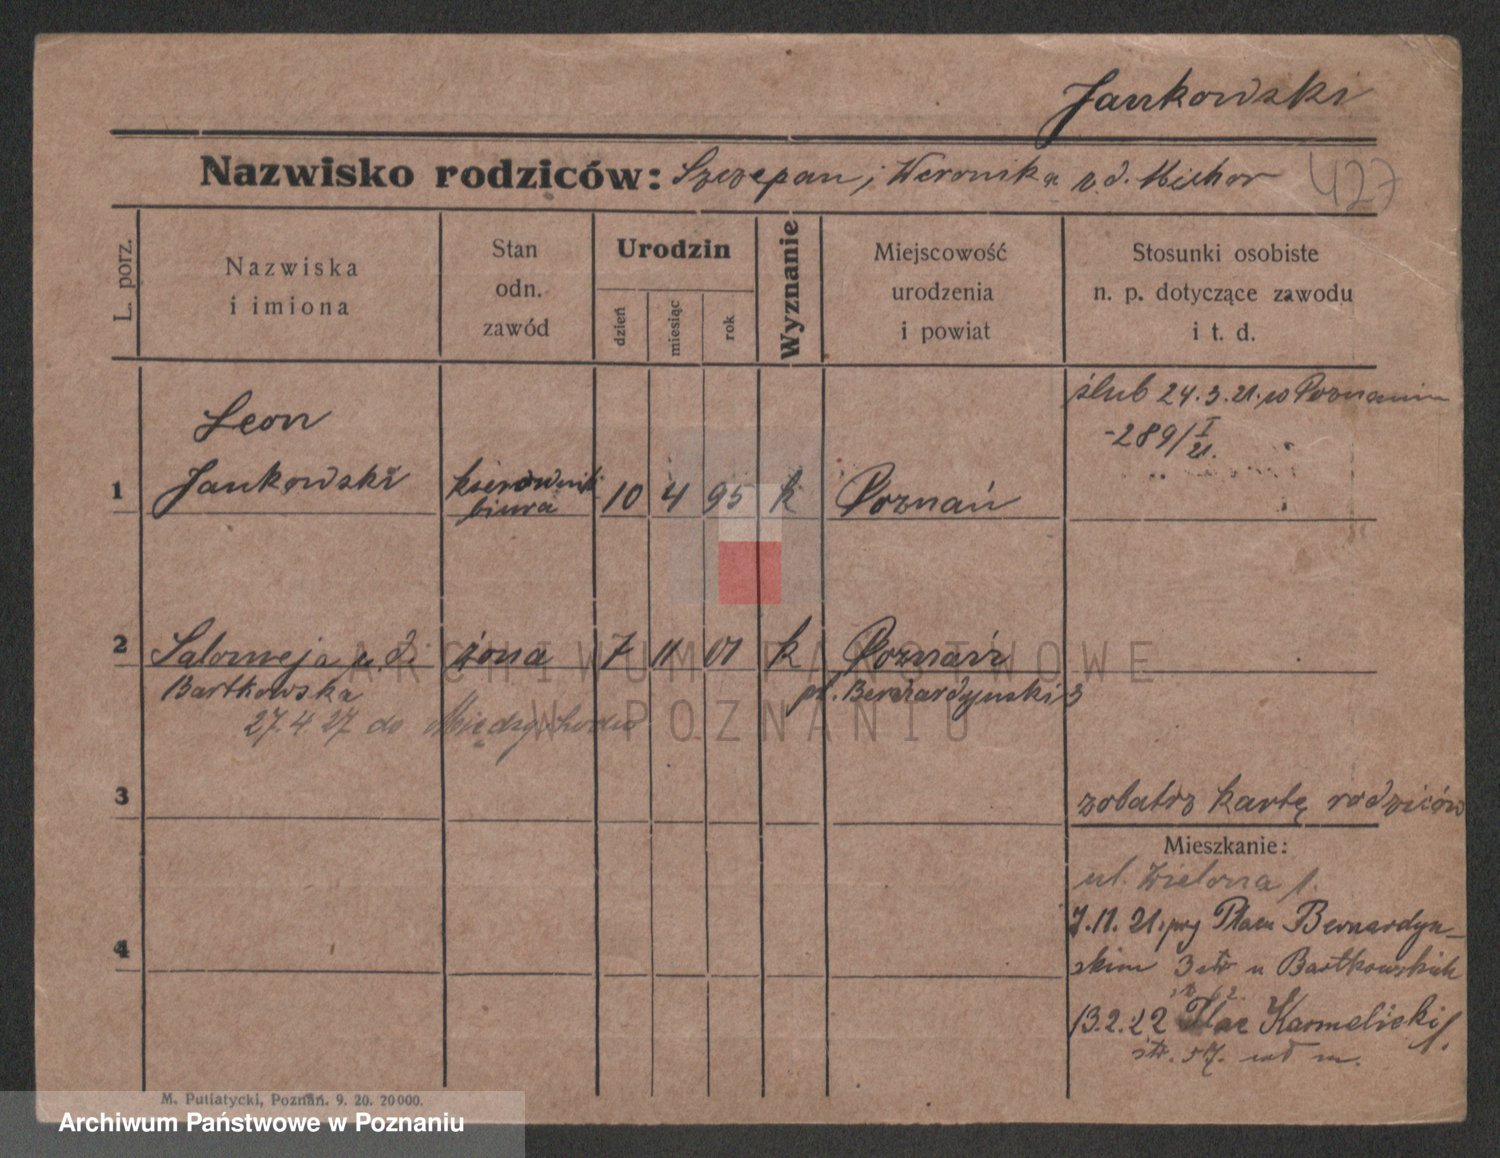 Jankowski
Nazwisko rodziców: Szczepan i Weronika z d. Michor
427
L. porz.
Nazwiska
i imiona
Stan
odn.
zawód
Urodzin
dzień
miesiąc
rok
Wyznanie
Miejscowość
urodzenia
i powiat
Stosunki osobiste
n. p. dotyczące zawodu
i t. d.
ślub 24.3.21. w Poznaniu
-289/I
21.
Leon
1 Jankowski kierownik 10 4 95 k Poznań
biura
2 Salomeja z d. żona 7 11 01 k Poznań
Bartkowska pl. Bernardyński 3
27.4 27 do Międzychodu
3
zobatrz kartę rodziców
Mieszkanie:
ul. Zielona 1.
7.11.21. przy Placu Bernardyn-
4
skim 3 u Bartkowskich
13.2.22 Plac Karmelicki 1.
str. 57.
M. Putiatycki, Poznań. 9. 20. 20000.
ARCHIWUM PAŃSTWOWE
W POZNANIU
Archiwum Państwowe w Poznaniu